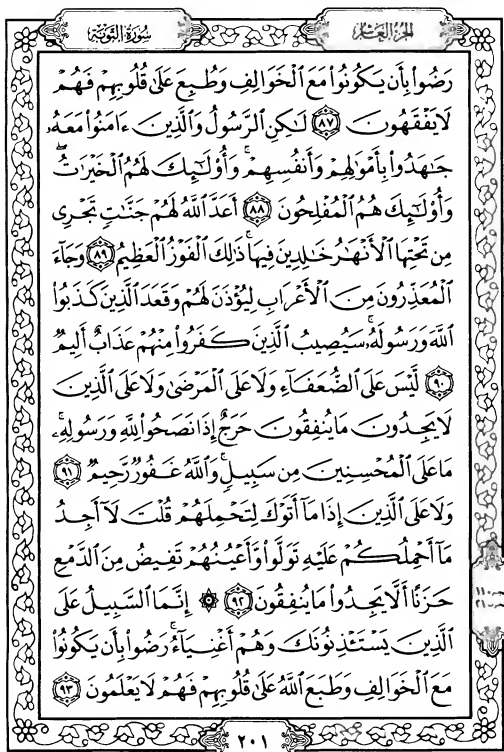 سُورَةُ التَّوْبَةِ
الجُزْءُ العَاشِرُ
رَضُوا۟ بِأَن يَكُونُوا۟ مَعَ ٱلْخَوَالِفِ وَطُبِعَ عَلَىٰ قُلُوبِهِمْ فَهُمْ
لَا يَفْقَهُونَ ٨٧ لَٰكِنِ ٱلرَّسُولُ وَٱلَّذِينَ ءَامَنُوا۟ مَعَهُۥ
جَٰهَدُوا۟ بِأَمْوَٰلِهِمْ وَأَنفُسِهِمْ ۚ وَأُو۟لَٰٓئِكَ لَهُمُ ٱلْخَيْرَٰتُ ۖ
وَأُو۟لَٰٓئِكَ هُمُ ٱلْمُفْلِحُونَ ٨٨ أَعَدَّ ٱللَّهُ لَهُمْ جَنَّٰتٍ تَجْرِى
مِن تَحْتِهَا ٱلْأَنْهَٰرُ خَٰلِدِينَ فِيهَا ۚ ذَٰلِكَ ٱلْفَوْزُ ٱلْعَظِيمُ ٨٩ وَجَآءَ
ٱلْمُعَذِّرُونَ مِنَ ٱلْأَعْرَابِ لِيُؤْذَنَ لَهُمْ وَقَعَدَ ٱلَّذِينَ كَذَبُوا۟
ٱللَّهَ وَرَسُولَهُۥ ۚ سَيُصِيبُ ٱلَّذِينَ كَفَرُوا۟ مِنْهُمْ عَذَابٌ أَلِيمٌ
٩٠ لَّيْسَ عَلَى ٱلضُّعَفَآءِ وَلَا عَلَى ٱلْمَرْضَىٰ وَلَا عَلَى ٱلَّذِينَ
لَا يَجِدُونَ مَا يُنفِقُونَ حَرَجٌ إِذَا نَصَحُوا۟ لِلَّهِ وَرَسُولِهِۦ ۚ
مَا عَلَى ٱلْمُحْسِنِينَ مِن سَبِيلٍ ۚ وَٱللَّهُ غَفُورٌ رَّحِيمٌ ٩١
وَلَا عَلَى ٱلَّذِينَ إِذَا مَآ أَتَوْكَ لِتَحْمِلَهُمْ قُلْتَ لَآ أَجِدُ
مَآ أَحْمِلُكُمْ عَلَيْهِ تَوَلَّوا۟ وَّأَعْيُنُهُمْ تَفِيضُ مِنَ ٱلدَّمْعِ
حَزَنًا أَلَّا يَجِدُوا۟ مَا يُنفِقُونَ ٩٢ ۞ إِنَّمَا ٱلسَّبِيلُ عَلَى
ٱلَّذِينَ يَسْتَـْٔذِنُونَكَ وَهُمْ أَغْنِيَآءُ ۚ رَضُوا۟ بِأَن يَكُونُوا۟
مَعَ ٱلْخَوَالِفِ وَطَبَعَ ٱللَّهُ عَلَىٰ قُلُوبِهِمْ فَهُمْ لَا يَعْلَمُونَ ٩٣
٢٠١